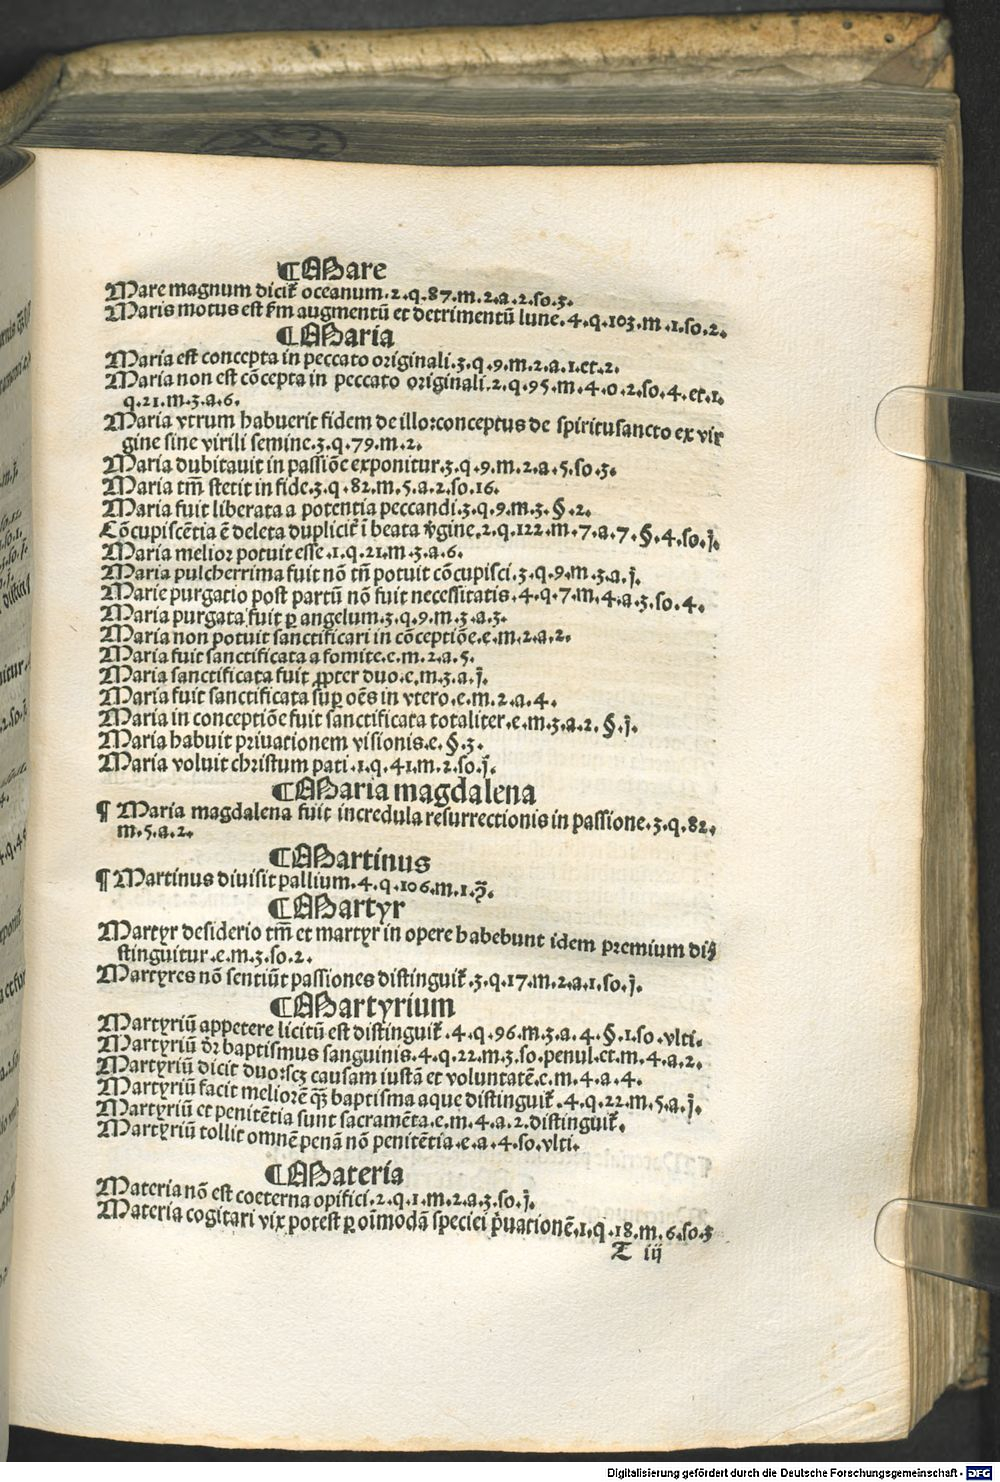 ¶Mare
Mare magnum dicit̃ oceanum.2.q.87.m.2.a.2.so.3.
Maris motus est fm augmentū et detrimentū lune.4.q.103.m.1.so.2.
¶Maria
Maria est concepta in peccato originali.3.q.9.m.2.a.1.et.2.
Maria non est cōcepta in peccato originali.2.q.95.m.4.o.2.so.4.et.1.
q.21.m.3.a.6.
Maria vtrum habuerit fidem de illo:conceptus de spiritusancto ex vir
gine sine virili semine.3.q.79.m.2.
Maria dubitauit in passiōe exponitur.3.q.9.m.2.a.5.so.3.
Maria tm̄ stetit in fide.3.q.82.m.5.a.2.so.16.
Maria fuit liberata a potentia peccandi.3.q.9.m.3.§.2.
Cōcupiscētia ē deleta duplicit̃ ī beata v̄gine.2.q.122.m.7.a.7.§.4.so.j.
Maria melior potuit esse.1.q.21.m.3.a.6.
Maria pulcherrima fuit nō tn̄ potuit cōcupisci.3.q.9.m.3.a.j.
Marie purgatio post partū nō fuit necessitatis.4.q.7.m.4.a.3.so.4.
Maria purgata fuit ꝑ angelum.3.q.9.m.3.a.3.
Maria non potuit sanctificari in cōceptiōe.e.m.2.a.2.
Maria fuit sanctificata a fomite.e.m.2.a.5.
Maria sanctificata fuit ꝓpter duo.e.m.3.a.j.
Maria fuit sanctificata sup̄ oēs in vtero.e.m.2.a.4.
Maria in conceptiōe fuit sanctificata totaliter.e.m.3.a.2.§.j.
Maria habuit priuationem visionis.e.§.3.
Maria voluit christum pati.1.q.41.m.2.so.j.
¶Maria magdalena
¶ Maria magdalena fuit incredula resurrectionis in passione.3.q.82.
m.5.a.2.
¶Martinus
¶ Martinus diuisit pallium.4.q.106.m.1.
¶Martyr
Martyr desiderio tm̄ et martyr in opere habebunt idem premium di
stinguitur.e.m.3.so.2.
Martyres nō sentiūt passiones distinguit̃.3.q.17.m.2.a.1.so.j.
¶Martyrium
Martyriū appetere licitū est distinguit̃.4.q.96.m.3.a.4.§.1.so.vlti.
Martyriū dr̄ baptismus sanguinis.4.q.22.m.3.so.penul.et.m.4.a.2.
Martyriū dicit duo:scꝫ causam iustā et voluntatē.e.m.4.a.4.
Martyriū facit meliorē q̄ꝫ baptisma aque distinguit̃.4.q.22.m.5.a.j.
Martyriū et penitētia sunt sacramēta.e.m.4.a.2.distinguit̃.
Martyriū tollit omnē penā nō penitētia.e.a.4.so.vlti.
¶Materia
Materia nō est coeterna opifici.2.q.1.m.2.a.3.so.j.
Materia cogitari vix potest ꝑ oīmodā speciei p̄uationē.1.q.18.m.6.so.3
T iij
Digitalisierung gefördert durch die Deutsche Forschungsgemeinschaft - DFG